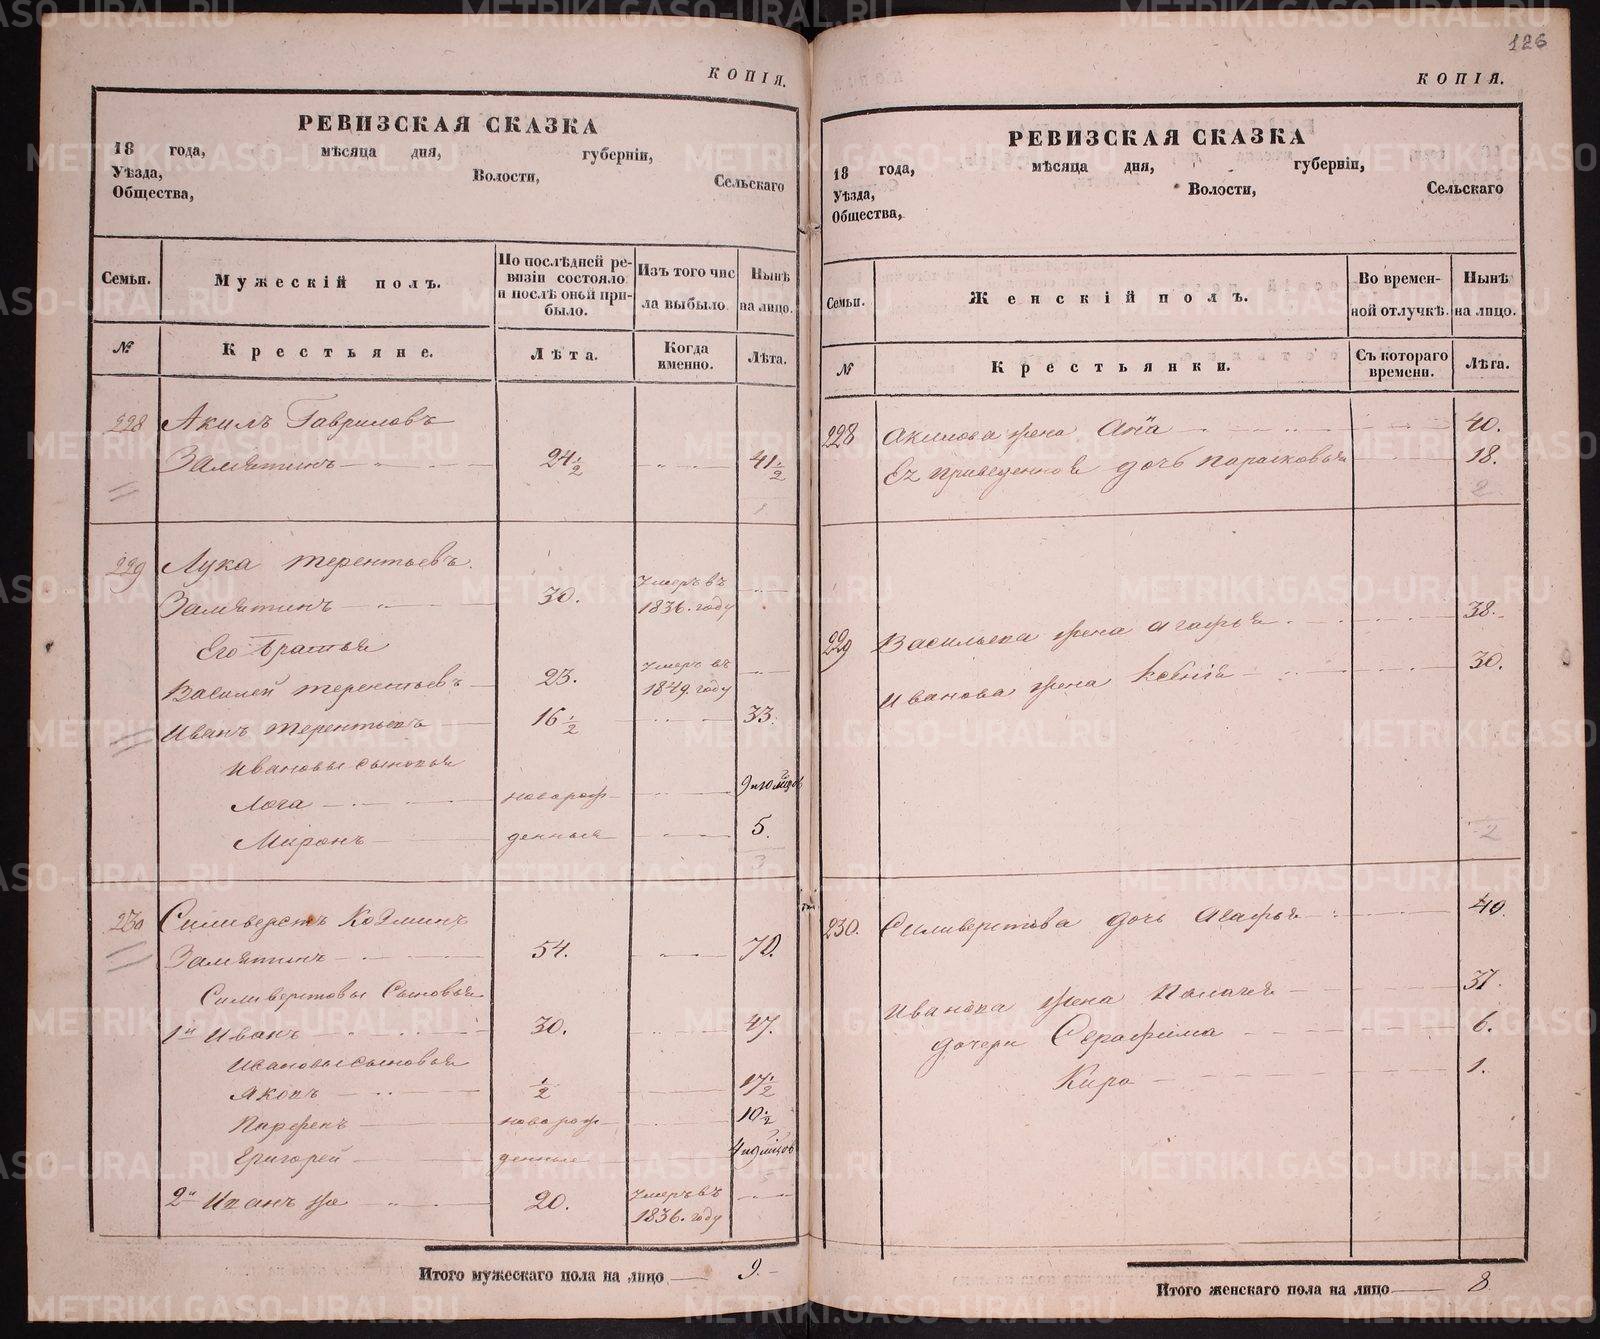 126
КОПІЯ.
РЕВИЗСКАЯ СКАЗКА
18 года, мѣсяца дня, губерніи,
Уѣзда, Волости, Сельскаго
Общества,
Семьи. Мужескій полъ. По послѣдней ревизіи состояло и послѣ оной прибыло. Изъ того числа выбыло. Нынѣ на лицо.
№ Крестьяне. Лѣта. Когда именно. Лѣта.
228 Акилъ Гавриловъ
Замятинъ 24 1/2 41 1/2
1
229 Лука Терентьевъ
Замятинъ 30. Умеръ въ 1836. году
Его братья
Василей Терентьевъ 23. Умеръ въ 1849. году
Иванъ Терентьевъ 16 1/2 33.
Ивановы сыновья
новорож-
Миронъ денныя 5.
3
230 Силиверстъ Козминъ
Замятинъ 54. 70.
Силиверстовы Сыновья
1й Иванъ 30. 47.
Ивановы сыновья
Яковъ 1/2 17 1/2
Парфенъ новорож- 10 1/2
Григорей денные
2й Иванъ же 20. Умеръ въ 1836. году
Итого мужескаго пола на лицо 9.
КОПІЯ.
РЕВИЗСКАЯ СКАЗКА
18 года, мѣсяца дня, губерніи,
Уѣзда, Волости, Сельскаго
Общества,
Семьи. Женскій полъ. Во временной отлучкѣ. Нынѣ на лицо.
№ Крестьянки. Съ котораго времени. Лѣта.
228 Акилова жена 40.
дочь Парасковья 18.
2
229 Васильева жена Агафья 38.
Иванова жена Ксенія 30.
2
230. Силиверстова дочь Агафья 40.
Иванова жена Палагея 37.
дочери Серафима 6.
Кира 1.
Итого женскаго пола на лицо 8
METRIKI.GASO-URAL.RU